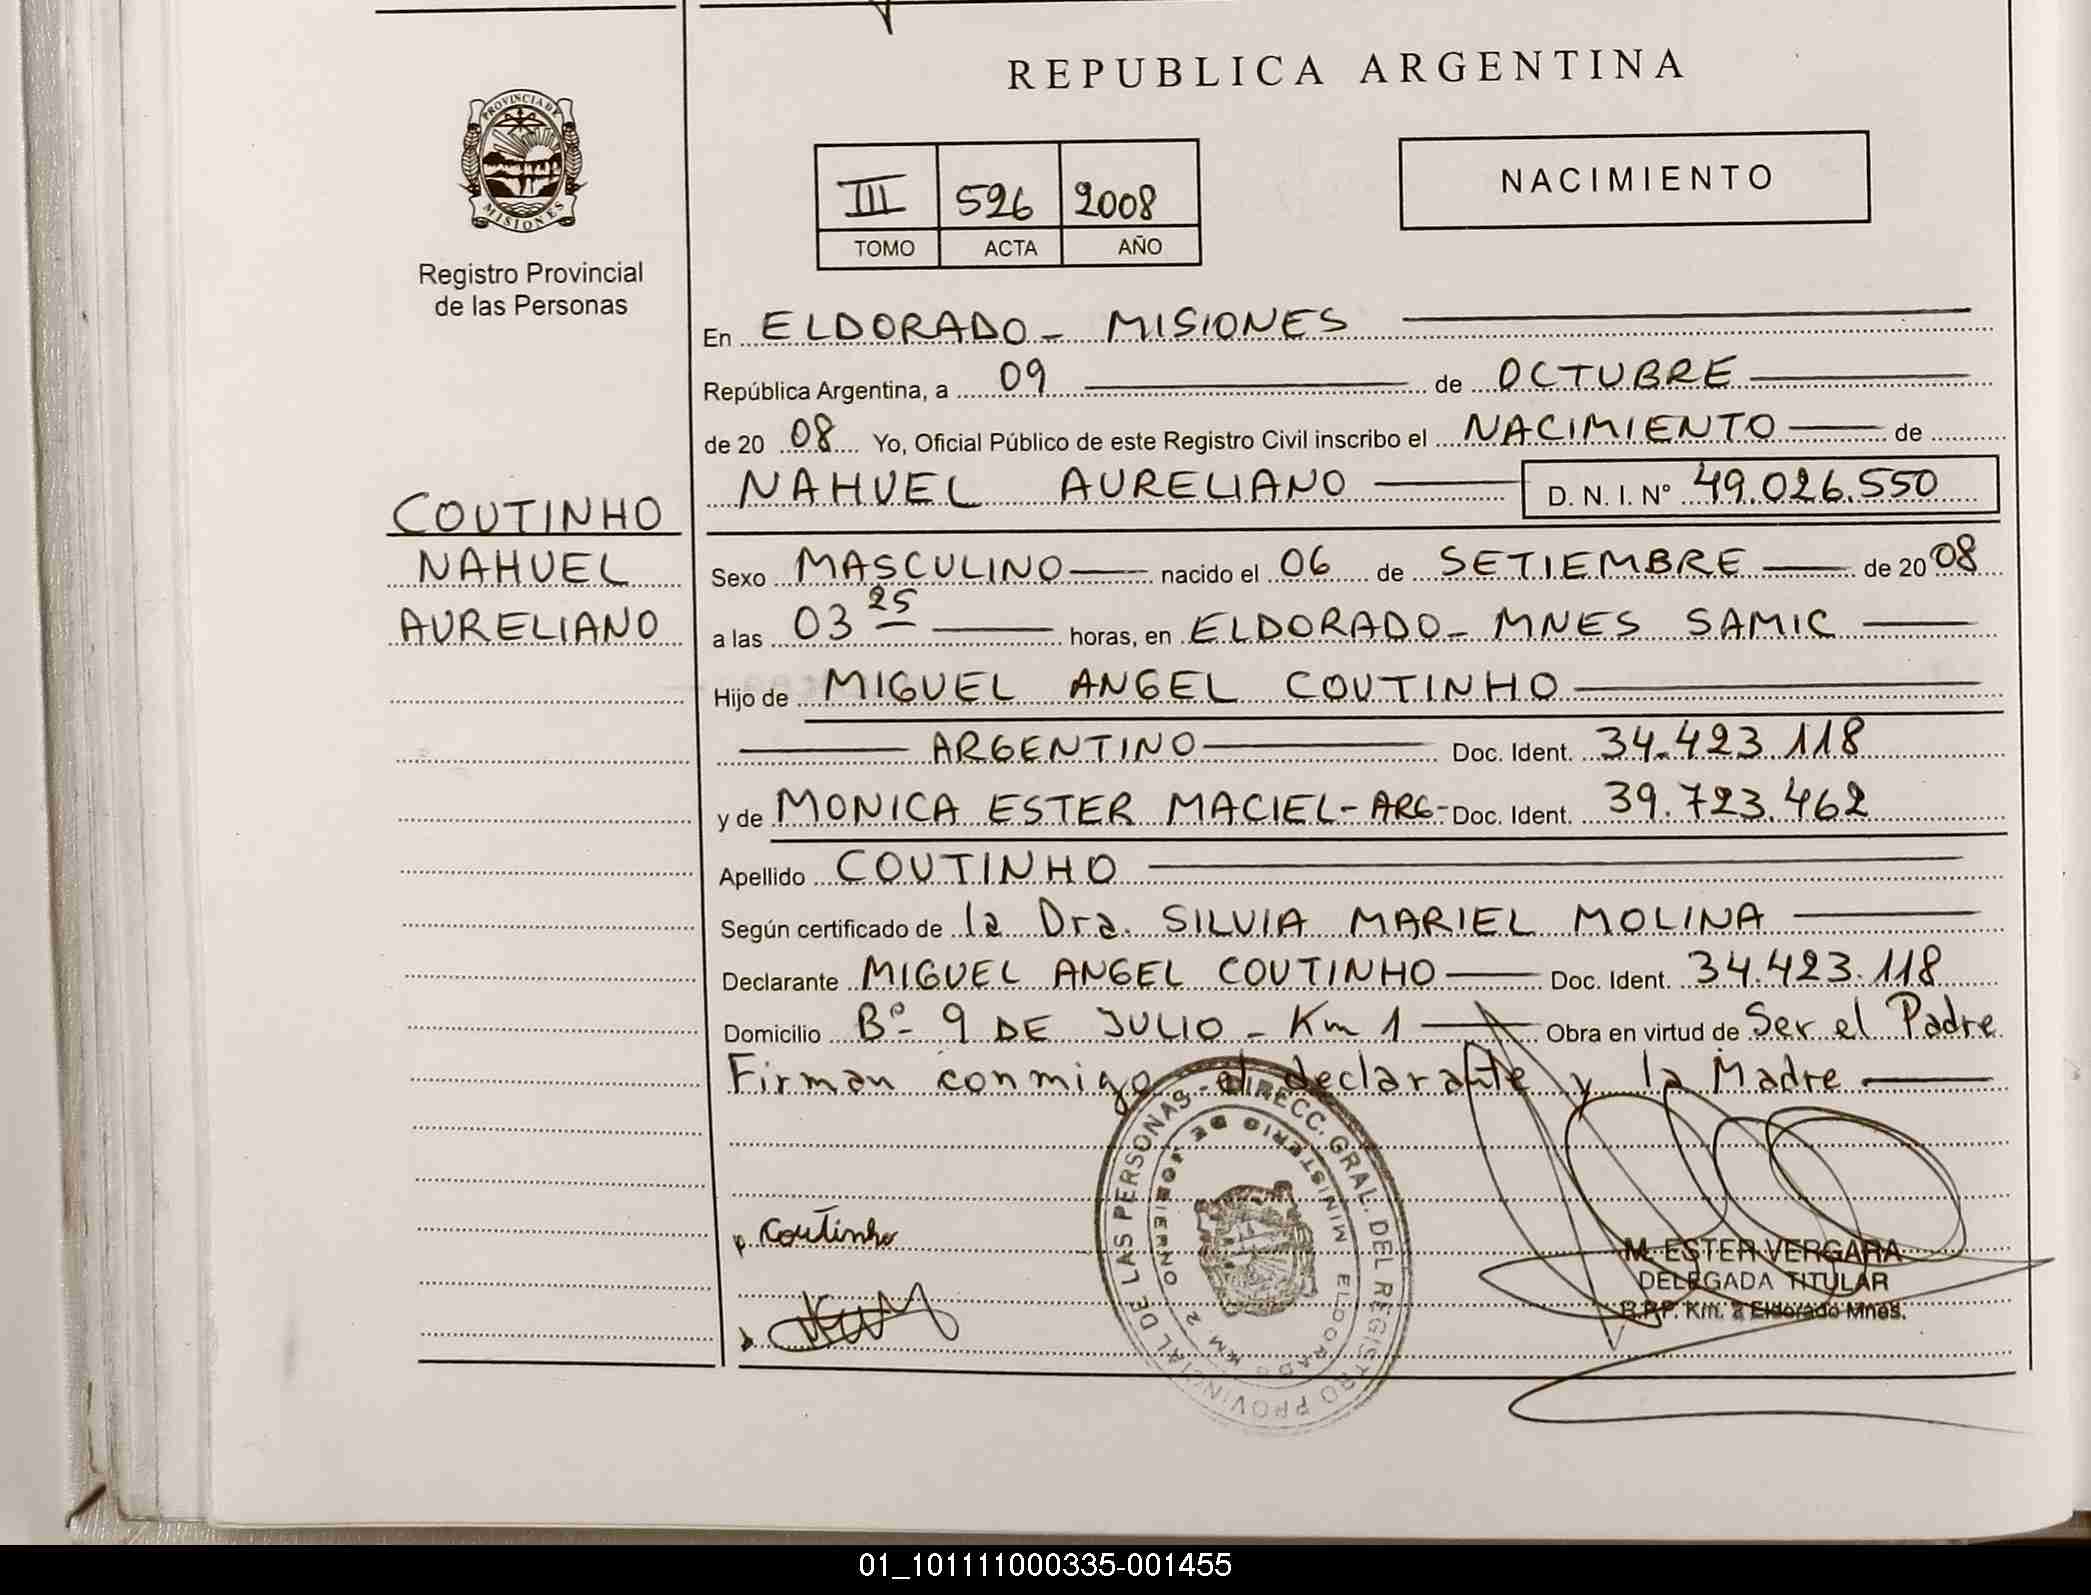 REPUBLICA ARGENTINA
PROVINCIA DE
MISIONES
Registro Provincial
de las Personas
III 526 2008
TOMO ACTA AÑO
NACIMIENTO
En ELDORADO - MISIONES
República Argentina, a 09 de OCTUBRE
de 20 08 Yo, Oficial Público de este Registro Civil inscribo el NACIMIENTO de
NAHUEL AURELIANO D. N. I. Nº 49.026.550
COUTINHO
NAHUEL
AURELIANO
Sexo MASCULINO nacido el 06 de SETIEMBRE de 20 08
a las 03 25 horas, en ELDORADO - MNES SAMIC
Hijo de MIGUEL ANGEL COUTINHO
ARGENTINO Doc. Ident. 34.423.118
y de MONICA ESTER MACIEL - ARG - Doc. Ident. 39.723.462
Apellido COUTINHO
Según certificado de la Dra. SILVIA MARIEL MOLINA
Declarante MIGUEL ANGEL COUTINHO Doc. Ident. 34.423.118
Domicilio Bº - 9 DE JULIO - Km 1 Obra en virtud de Ser el Padre
Firman conmigo el declarante y la Madre
Coutinho
DIRECC. GRAL. DEL REGISTRO PROVINCIAL DE LAS PERSONAS -
MINISTERIO DE GOBIERNO
ELDORADO KM 2
M. ESTER VERGARA
DELEGADA TITULAR
R.P.P. Km. 2 Eldorado Mnes.
01_101111000335-001455